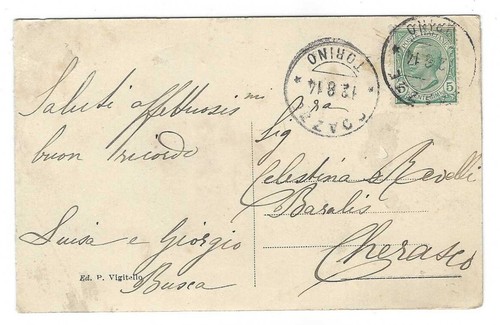 Saluti affettuosis mi
buon ricordo
Luisa e Giorgio
Busca
Ed. P. Vigitello
TORINO
12.8.14
5
Sig ra
Celestina Revelli
Baralis
Cherasco